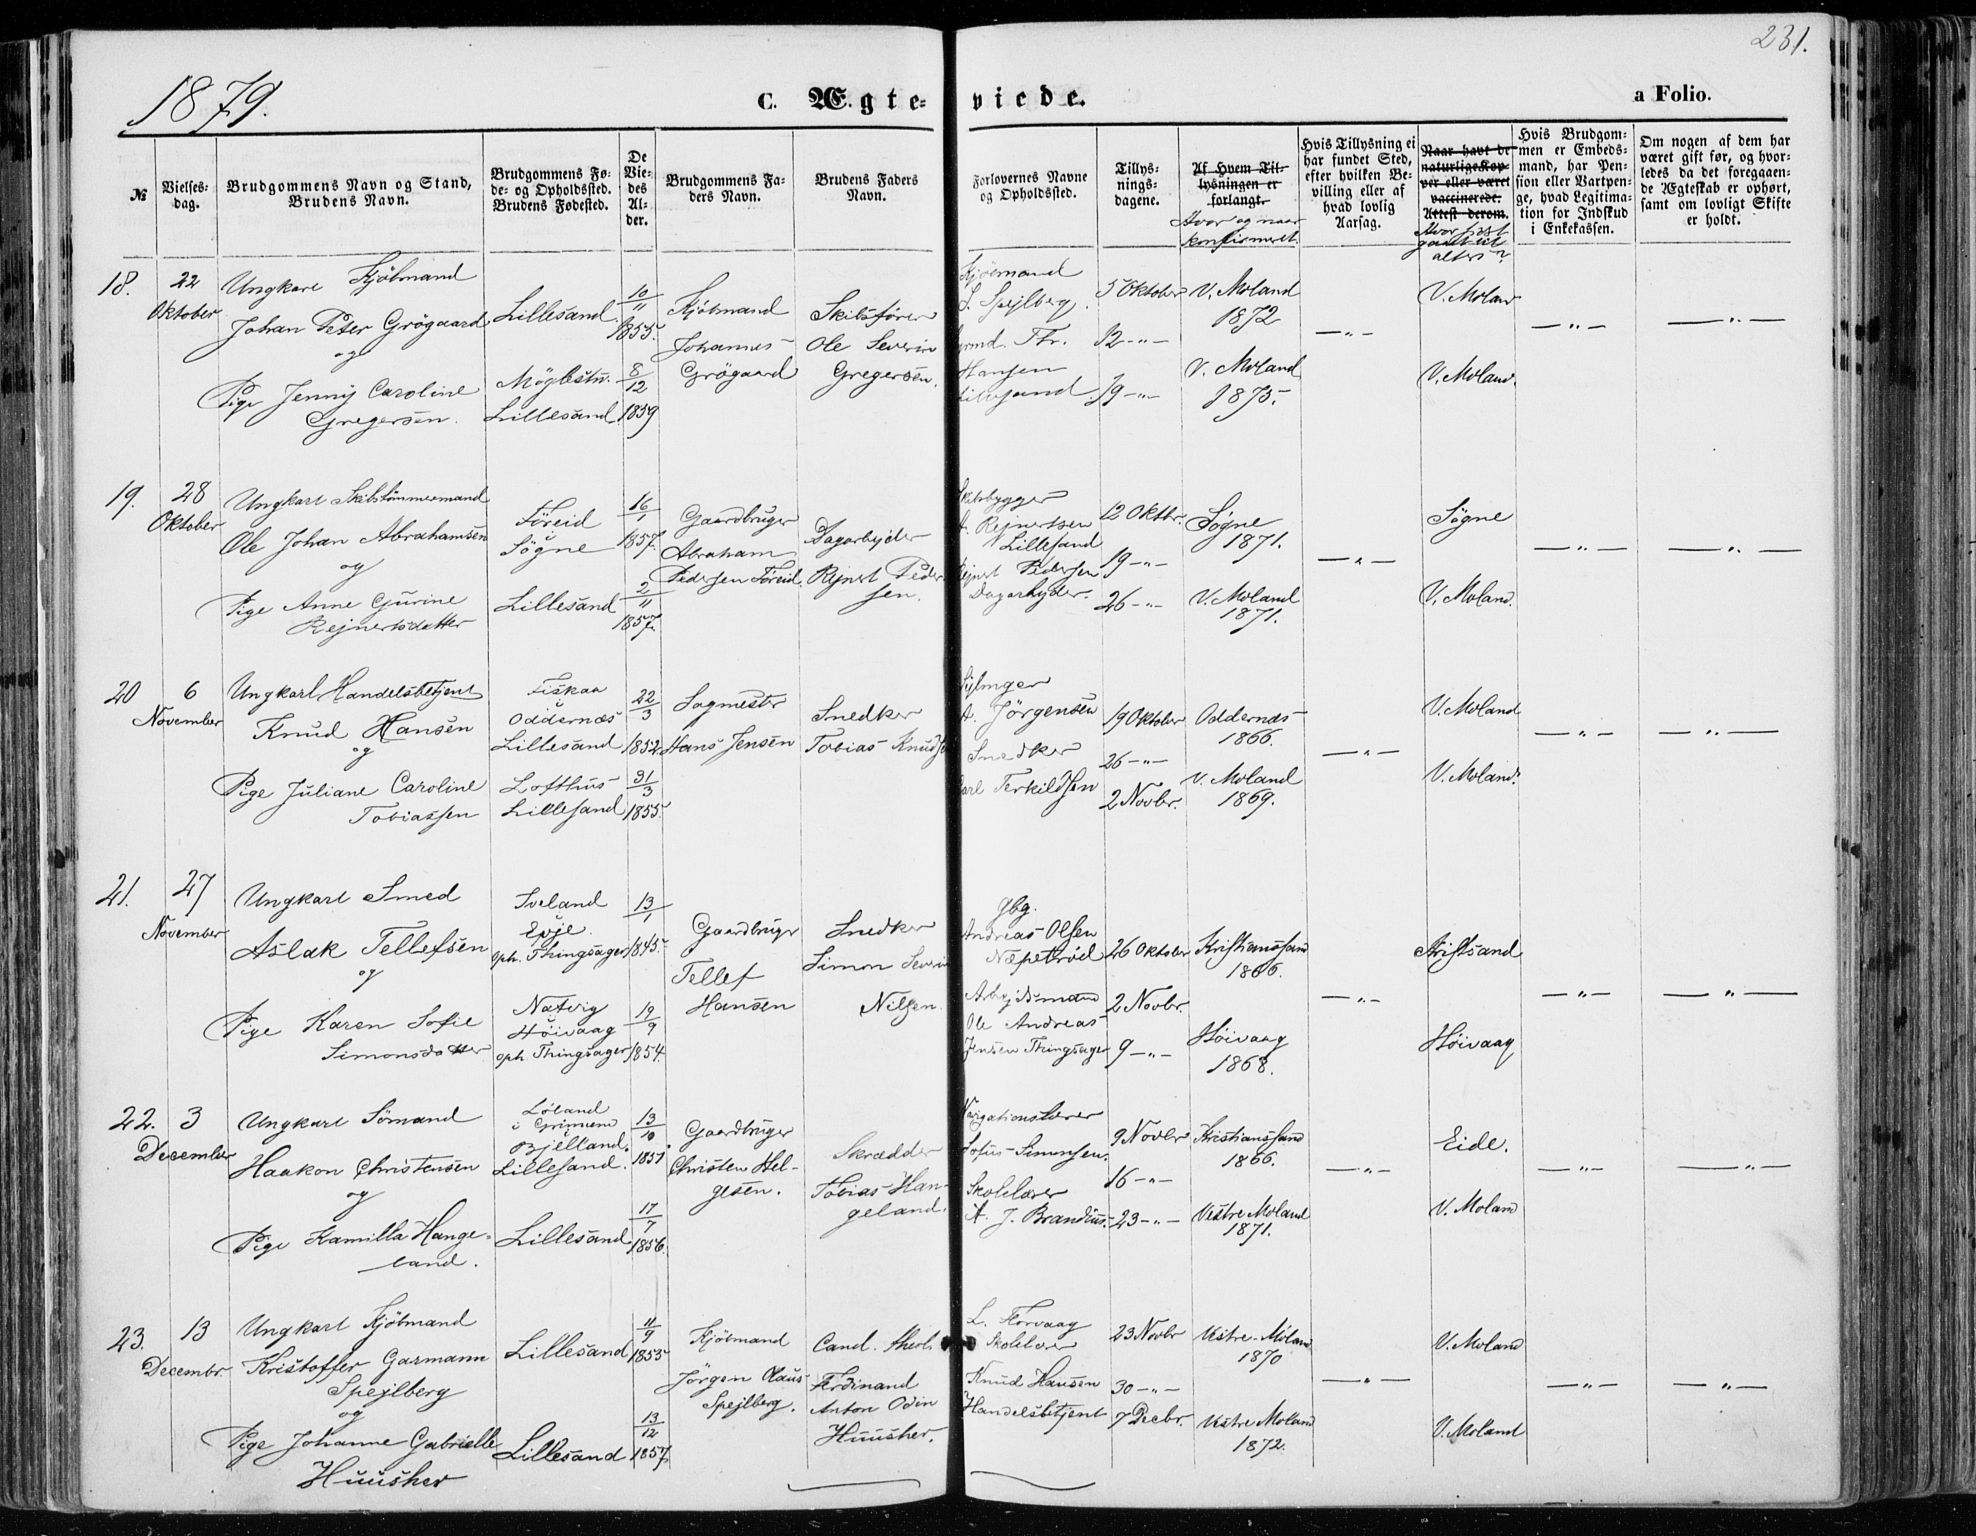 231.
1879.
C. Ægte-
viede.
a Folio.
№
Vielses-
dag.
Brudgommens Navn og Stand,
Brudens Navn.
Brudgommens Fø-
de- og Opholdssted.
Brudens Fødested.
De
Vie-
des
Al-
der.
Brudgommens Fa-
ders Navn.
Brudens Faders
Navn.
Forlovernes Navne
og Opholdssted.
Tillys-
nings-
dagene.
Af Hvem Til-
lysningen er
forlangt.
Hvor og naar
konfirmeret
Hvis Tillysning ei
har fundet Sted,
efter hvilken Be-
villing eller af
hvad lovlig
Aarsag.
Naar havt de
naturlige Kop-
per eller været
vaccinerede.
Attest derom.
Hvor sidst
gaaet til
alters?
Hvis Brudgom-
men er Embeds-
mand, har Pen-
sion eller Vartpen-
ge, hvad Legitima-
tion for Indskud
i Enkekassen.
Om nogen af dem har
været gift før, og hvor-
ledes da det foregaaen-
de Ægteskab er ophørt,
samt om lovligt Skifte
er holdt.
18.
22
Oktober
Ungkarl Kjöbmand
Johan Peter Grögaard
og
Pige Jenny Caroline
Gregersen.
Lillesand
Möglestu.
Lillesand.
10/11
1855.
8/12
1859
Kjöbmand
Johannes
Grögaard
Skibsförer
Ole Severin
Gregersen.
Kjöbmand
S. Spejlberg.
Thr.
Hansen
Lillesand
5 Oktober
12 -"-
19 -"-
V. Moland
1872
V. Moland
1875.
-"-
V. Molan
V. Moland.
-"-
-"-
19.
28
Oktober
Ungkarl Skibstömmermand
Ole Johan Abrahamsen
og
Pige Anne Gurine
Rejnertsdatter
Föreid
Søgne
Lillesand
16/1
1857.
2/11
1857.
Gaardbruger
Abraham
Pedersen Föreid
Dagarbejder
Rejnert Peder-
sen.
Skibsbygger
A. Rejnertsen
Lillesand
Rejnert Pedersen
Dagarbejder.
12 Oktbr.
19 -"-
26 -"-
Søgne
1871.
V. Moland
1871.
-"-
Søgne
V. Moland.
-"-
-"-
20
6
November
Ungkarl Handelsbetjent
Knud Hansen
og
Pige Juliane Caroline
Tobiassen
Fiskaa
i
Oddernæs
Lillesand
Lofthus
Lillesand
22/3
1852.
31/3
1855.
Sagmester
Hans Jensen
Snedker
Tobias Knudse
A. Jörgensen
Snedker
Carl Terkildsen
19 Oktober
26 -"-
2 Novbr.
Oddernæs
1866.
V. Moland
1869.
-"-
V. Moland
V. Moland.
-"-
-"-
21.
27
November
Ungkarl Smed
Aslak Tellefsen
og
Pige Karen Sofie
Simonsdatter
Sveland
Evje.
oph. Thingsager
Natvig
i
Höivaag
oph. Thingsager
13/1
1845.
19/9
1854.
Gaardbruger
Tellef
Hansen
Snedker
Simon Severin
Nilsen.
Gbg.
Andreas Olsen
Næpetrød
Arbejdsmand
Ole Andreas
Jensen Thingsager
26 Oktober
2 Novbr.
9 -"-
Kristianssand
1866.
Höivaag
1868.
-"-
Kristsand
Höivaag
-"-
-"-
22.
3
December
Ungkarl Sömand
Haakon Christensen
og
Pige Kamilla Hange-
land.
Löland
i Grinum
Bjelland.
Lillesand.
Lillesand
13/10
1851
17/7
1856.
Gaardbruger
Christen Hel-
gesen.
Skrædder
Tobias Han-
geland.
Navigationslærer
Sofus Simonsen.
Skolelærer
A. J. Brandius.
9 Novbr
16 -"-
23 -"-
Kristianssand
1866.
Vestre Moland
1871.
-"-
Eide.
V. Moland
-"-
-"-
23.
13
Decembr.
Ungkarl Kjöbmand
Kristoffer Garmann
Spejlberg
og
Pige Johanne Gabrielle
Huusher
Lillesand
Lillesand
11/9
1855
13/12
1857.
Kjöbmand
Jörgen Claus
Spejlberg.
Cand. theol.
Ferdinand
Anton Odin
Huusher.
L. Horvaag
Skolelærer
Knud Hansen
Handelsbetjent
23 Novbr
30 -"-
7 Decbr.
Vestre-Moland
1870
Vestre Moland
1872.
-"-
V. Moland
V. Moland
-"-
-"-